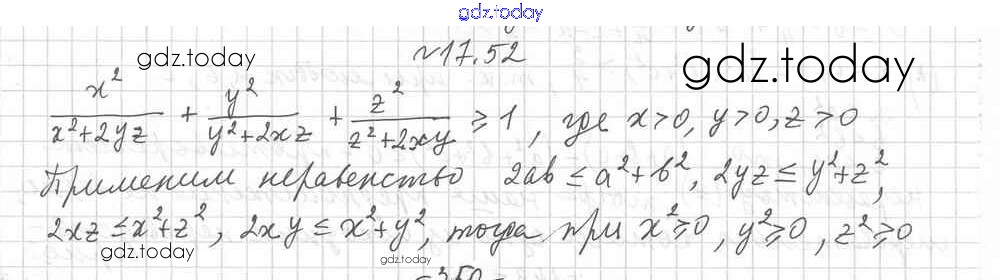 gdz.today
№17.52
gdz.today
gdz.today
x²/(x²+2yz) + y²/(y²+2xz) + z²/(z²+2xy) ≥ 1, где x>0, y>0, z>0
Применим неравенство 2ab ≤ a²+b², 2yz ≤ y²+z²,
2xz ≤ x²+z², 2xy ≤ x²+y², тогда при x²≥0, y²≥0, z²≥0
gdz.today
gdz.today